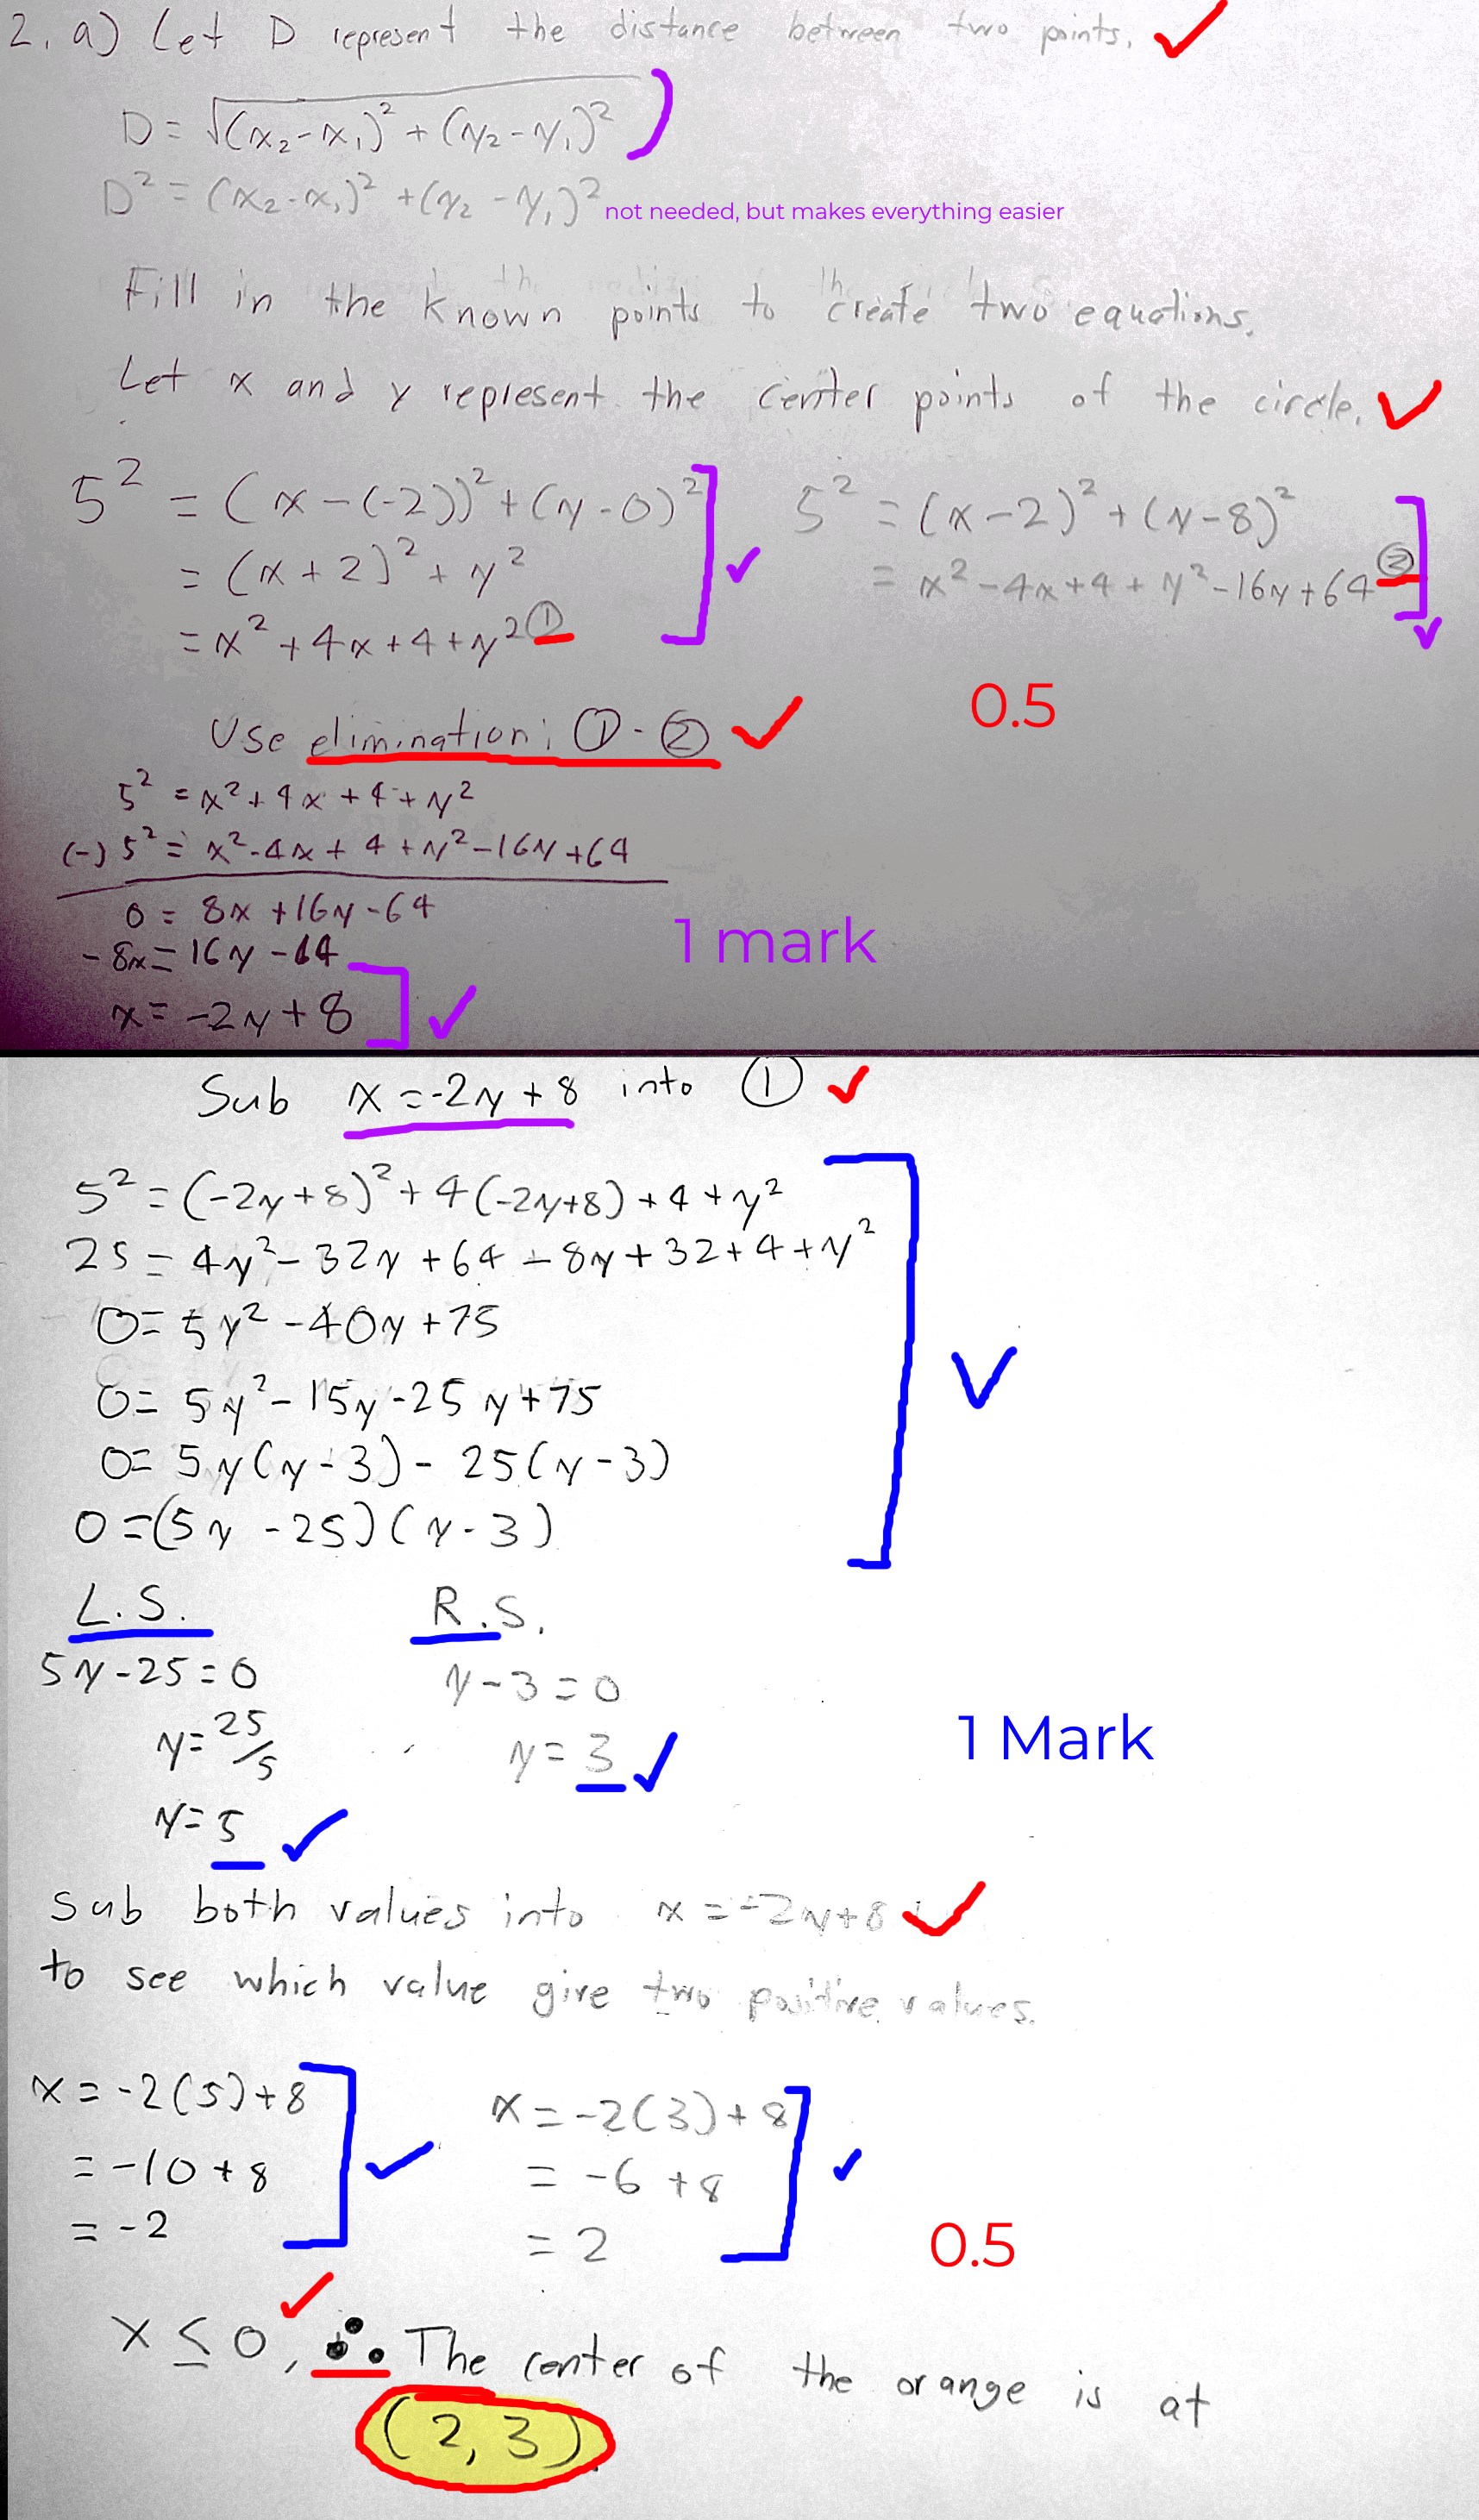 2. a) Let D represent the distance between two points.
D = √(x₂-x₁)² + (y₂-y₁)²
D² = (x₂-x₁)² + (y₂-y₁)² not needed, but makes everything easier
Fill in the known points to create two equations.
Let x and y represent the center points of the circle.
5² = (x-(-2))² + (y-0)²
= (x+2)² + y²
= x² + 4x + 4 + y² ①
5² = (x-2)² + (y-8)²
= x² - 4x + 4 + y² - 16y + 64 ②
0.5
Use elimination: ① - ②
5² = x² + 4x + 4 + y²
(-) 5² = x² - 4x + 4 + y² - 16y + 64
0 = 8x + 16y - 64
-8x = 16y - 64
x = -2y + 8
1 mark
Sub x = -2y + 8 into ①
5² = (-2y+8)² + 4(-2y+8) + 4 + y²
25 = 4y² - 32y + 64 - 8y + 32 + 4 + y²
0 = 5y² - 40y + 75
0 = 5y² - 15y - 25y + 75
0 = 5y(y-3) - 25(y-3)
0 = (5y - 25)(y-3)
L.S.
5y - 25 = 0
y = 25/5
y = 5
R.S.
y - 3 = 0
y = 3
1 Mark
Sub both values into x = -2y + 8
to see which value give two positive values.
x = -2(5) + 8
= -10 + 8
= -2
x = -2(3) + 8
= -6 + 8
= 2
0.5
x ≤ 0, ∴ The center of the orange is at
(2, 3).